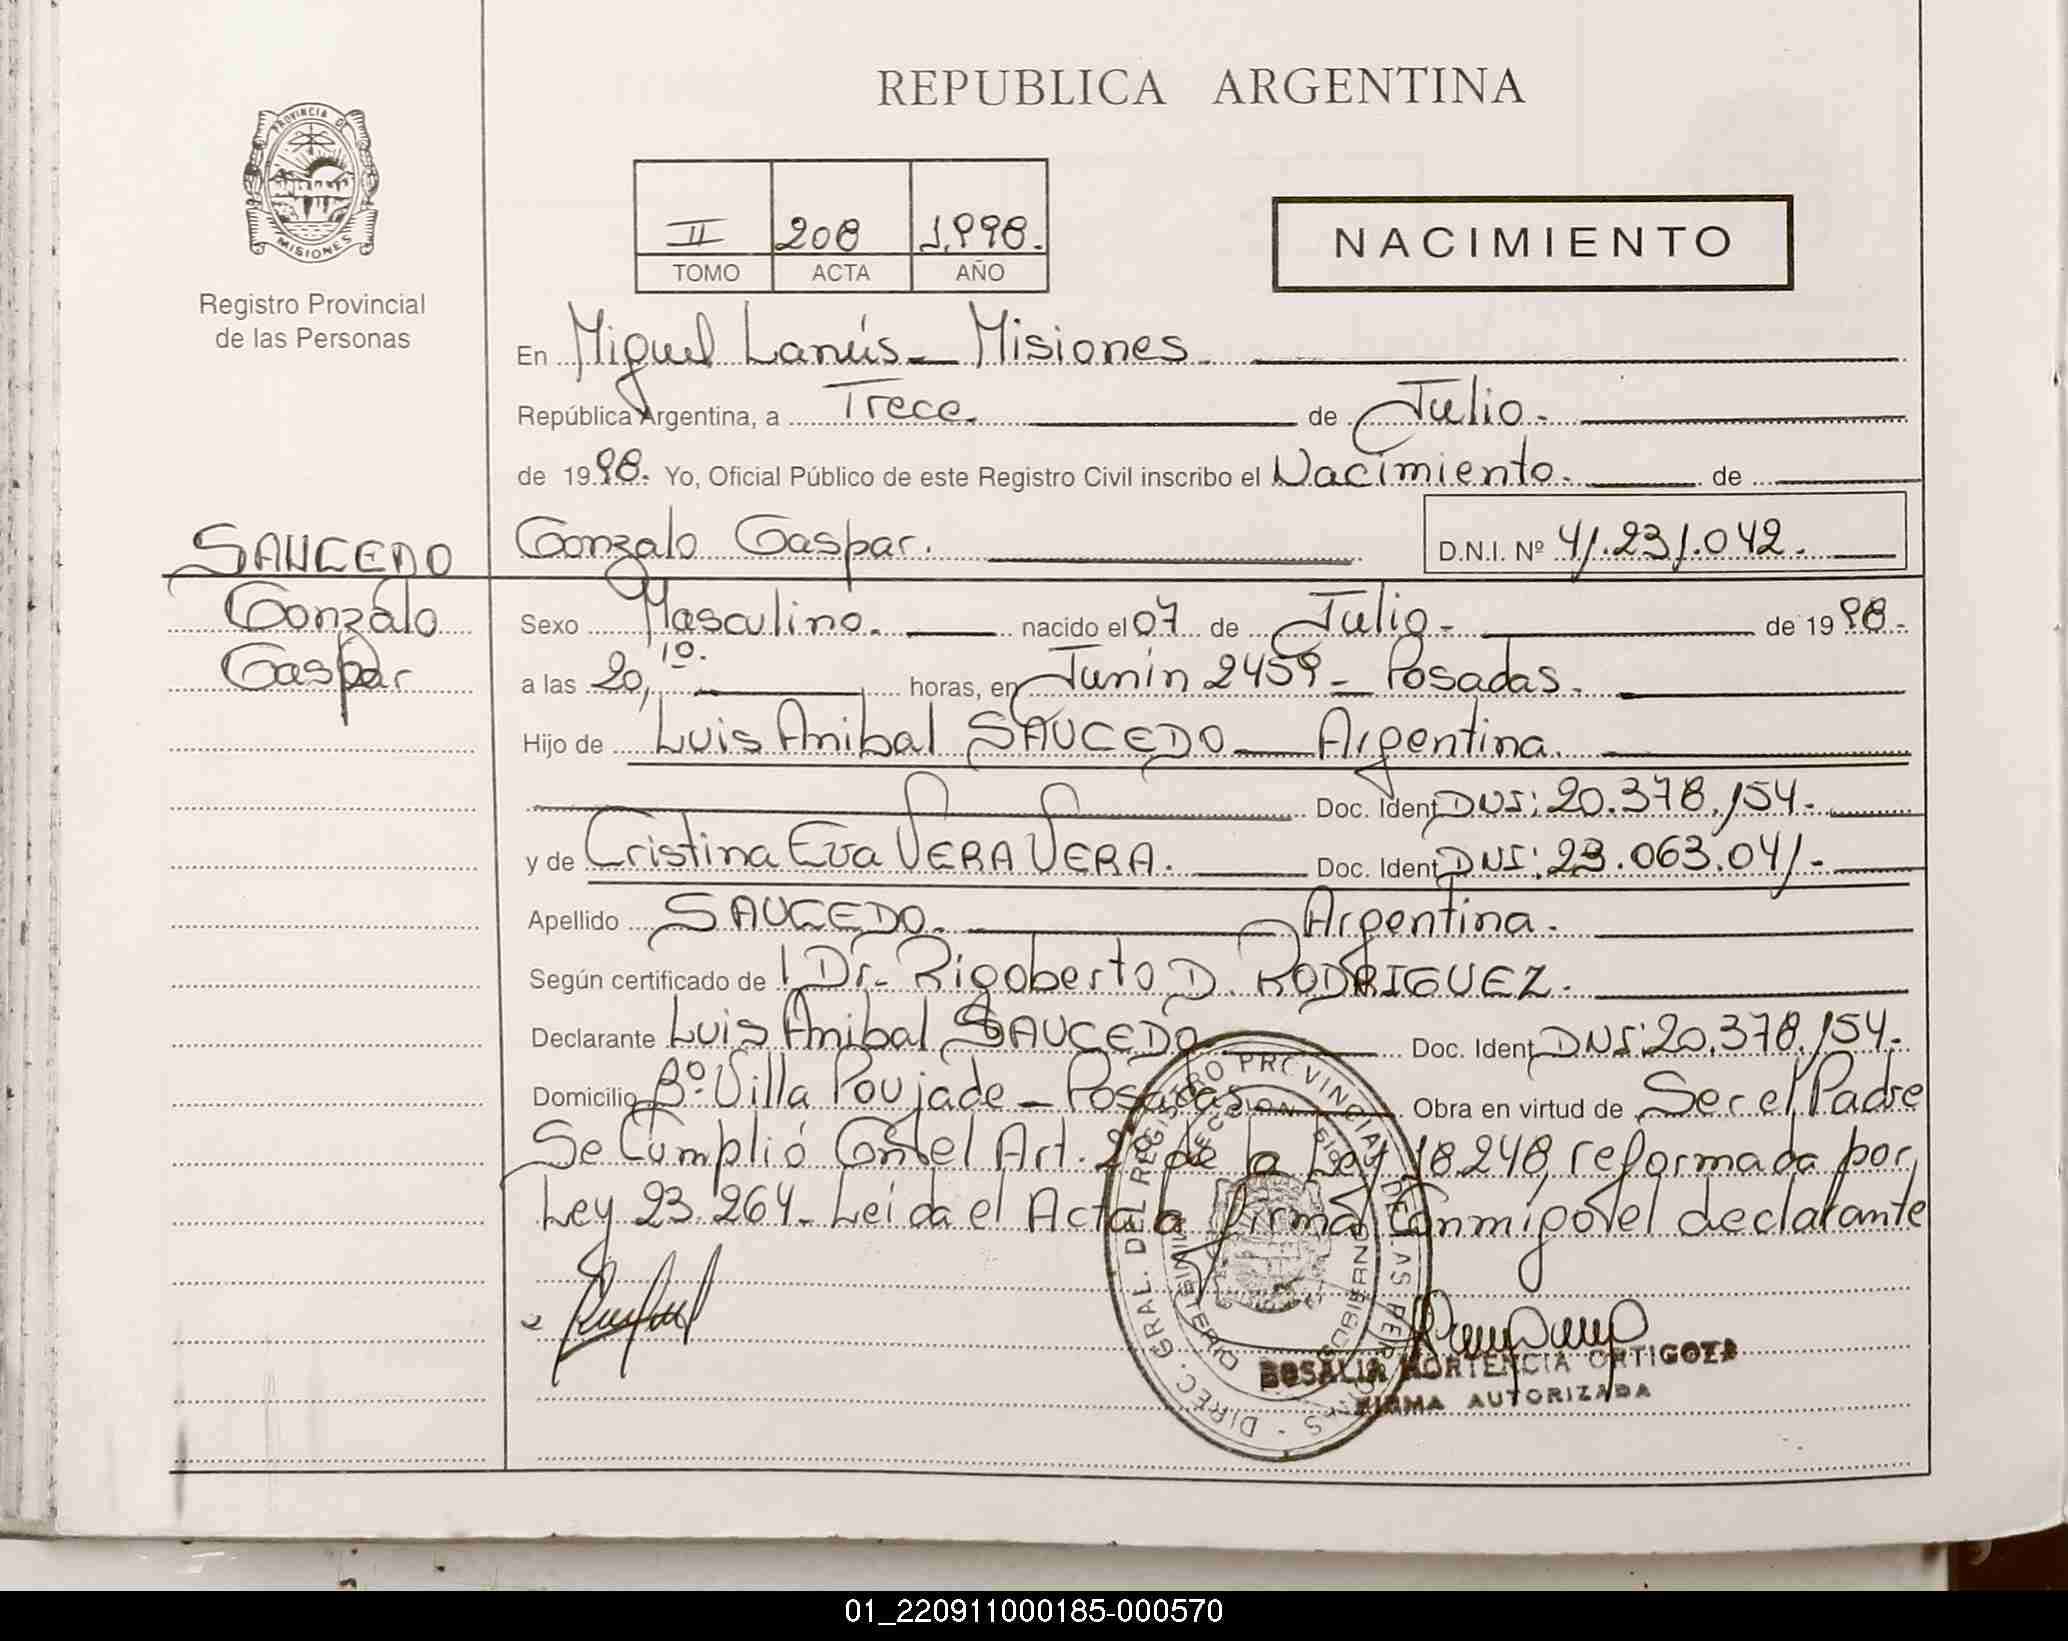 REPUBLICA ARGENTINA
PROVINCIA DE
MISIONES
Registro Provincial
de las Personas
II 208 1.998.
TOMO ACTA AÑO
NACIMIENTO
En Miguel Lanús - Misiones
República Argentina, a Trece. de Julio.
de 1998. Yo, Oficial Público de este Registro Civil inscribo el Nacimiento. de
SAUCEDO
Gonzalo
Gaspar
Gonzalo Gaspar. D.N.I. Nº 41.231.042.
Sexo Masculino. nacido el 07 de Julio- de 1998.
a las 20,10. horas, en Junin 2459 - Posadas.
Hijo de Luis Anibal SAUCEDO Argentina.
Doc. Ident. DNI: 20.378.154.
y de Cristina Eva VERA VERA. Doc. Ident. DNI: 23.063.041.
Apellido SAUCEDO. Argentina.
Según certificado de Dr. Rigoberto D. RODRIGUEZ.
Declarante Luis Anibal SAUCEDO Doc. Ident. DNI: 20.378.154.
Domicilio Bº. Villa Poujade - Posadas Obra en virtud de Ser el Padre
Se Cumplió Con el Art. 2º de la Ley 18.248, reformada por
Ley 23.264. Leida el Acta la firma Conmigo el declarante
DIREC. GRAL. DEL REGISTRO PROVINCIAL DE LAS PERSONAS
ROSALIA HORTENCIA ORTIGOZA
FIRMA AUTORIZADA
01_220911000185-000570